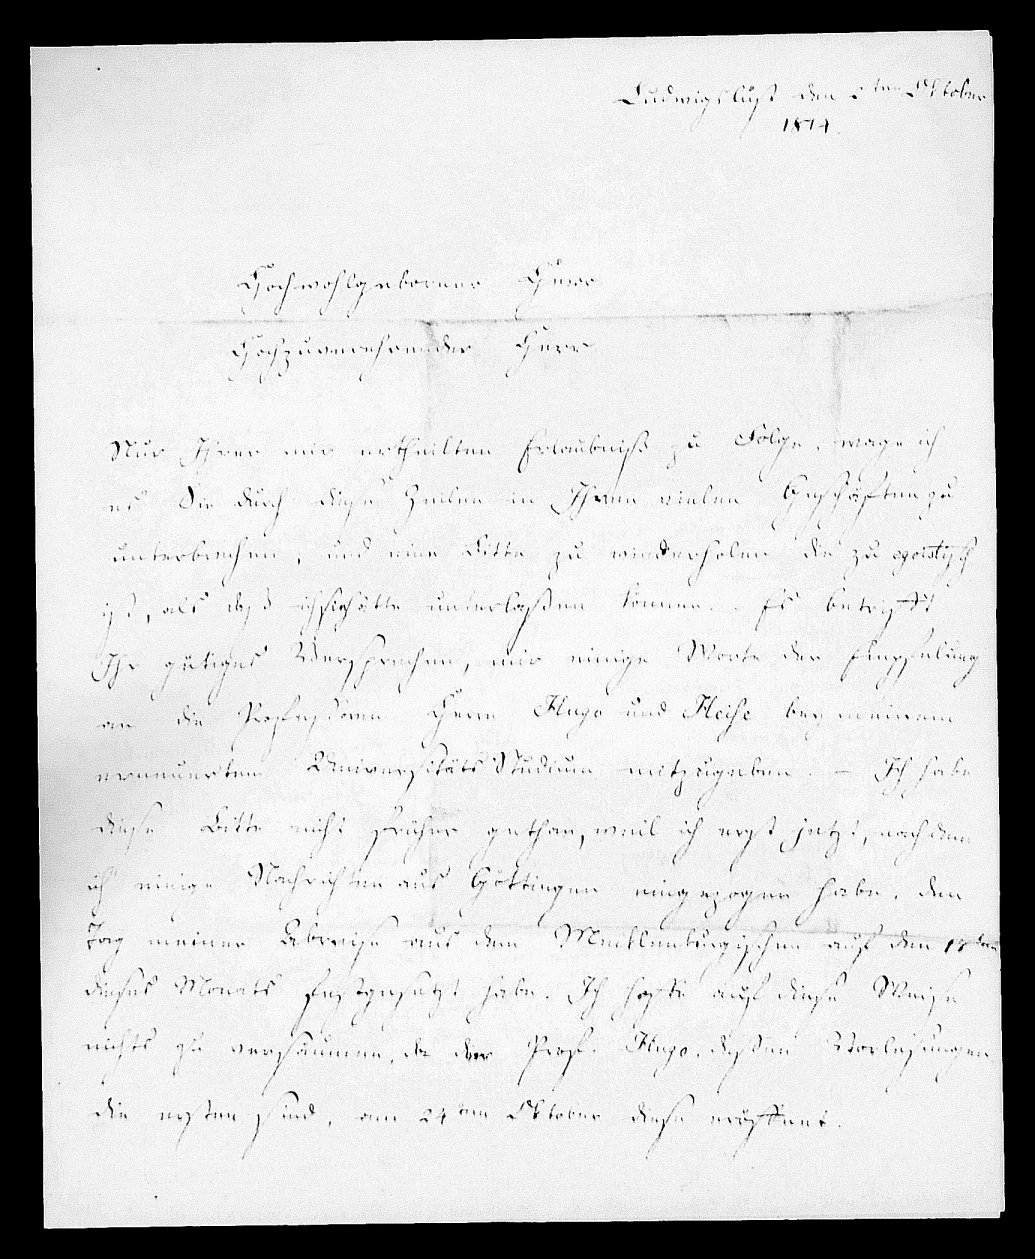 Ludwigslust den 2ten Oktober
1814.
Hochwohlgeborner Herr
Hochzuverehrender Herr
Nur Ihrer mir ertheilten Erlaubniß zu Folge, wage ich
es Sie durch diese Zeilen in Ihren vielen Geschäften zu
unterbrechen, und eine Bitte zu wiederholen die zu egoistisch
ist, als daß ich sie hätte unterlaßen können. Es betrifft
Ihr gütiges Versprechen, mir einige Worte der Empfelung
an die Professoren Herrn Hugo und Heise bey meinem
erneuerten Universitäts Studium mitzugeben. – Ich habe
diese Bitte nicht früher gethan, weil ich erst jetzt, nachdem
ich einige Nachrichten aus Göttingen eingezogen habe, den
Tag meiner Abreise aus dem Mecklenburgischen auf den 18ten
dieses Monats festgesetzt habe. Ich hoffe auf diese Weise
nichts zu versäumen, da der Prof. Hugo, dessen Vorlesungen
die ersten sind, am 24ten Oktober diese eröffnet.